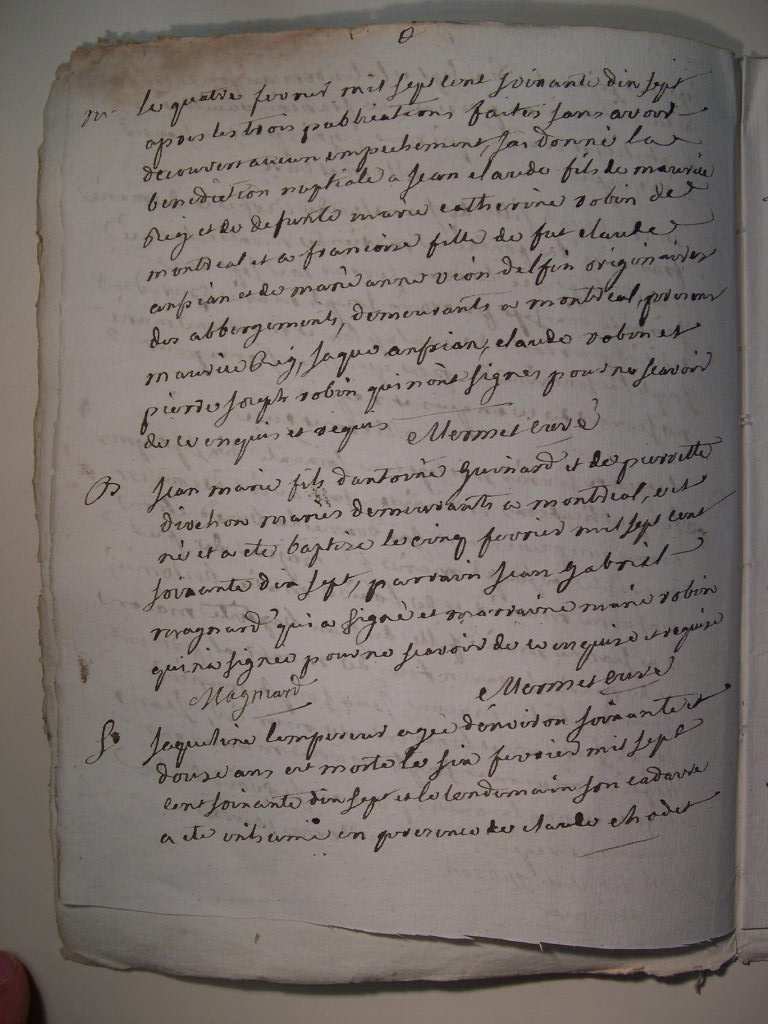 m. le quatre fevrier mil sept cent soixante dix sept
apres les trois publications faites sans avoir
decouvert aucun empechement, j'ai donné la
benediction nuptiale a jean claude fils de maurice
Rey et de defunte marie catherine robin de
montreal et a francoise fille de fut claude
anprian et de marie anne vion delfin originaires
des abbergements, demeurants a montreal, presens
maurice Rey, jaque anprian, claude robin et
pierre joseph robin qui n'ont signes pour ne scavoir
de ce enquis et requis Mermet curé
B jean marie fils d'antoine Guinard et de pierrette
divelion mariés demeurants a montreal, est
né et a ete baptise le cinq fevrier mil sept cent
soixante dix sept, parrain jean Gabriel
magnard qui a signé et marraine marie robin
qui n'a signee pour ne scavoir de ce enquise et requise
Magniard Mermet curé
S jaqueline lempereur agée d'environ soixante et
douze ans est morte le six fevrier mil sept
cent soixante dix sept et le lendemain son cadavre
a ete inhumé en presence de claude chodet